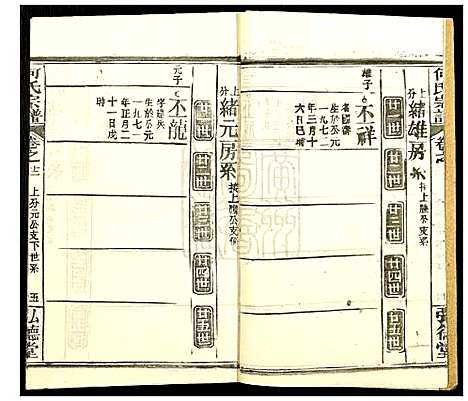 何氏宗譜
卷之
弘德堂
上分
緒雄房系
接上騰公支系
廿一世
廿二世
廿三世
廿四世
廿五世
雄子
丕祥
生於公元
一九七二
年三月十
六日巳時
上分
緒元房系
接上騰公支系
廿一世
廿二世
廿三世
廿四世
廿五世
元子
丕龍
生於公元
一九七一
年正月二
十一日戌
時
何氏宗譜
卷之十二
上分元公支下世系
五
弘德堂